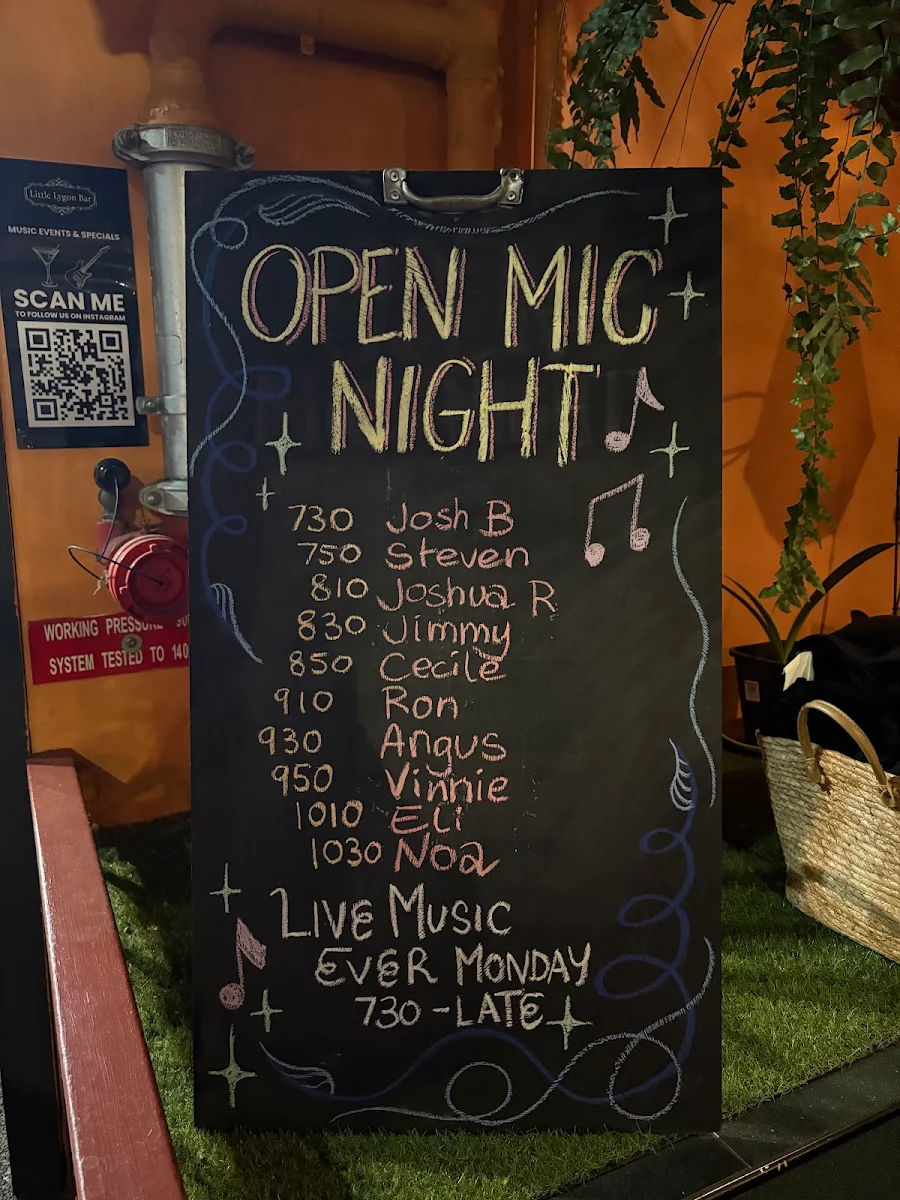 Little Lygon Bar
MUSIC EVENTS & SPECIALS
SCAN ME
TO FOLLOW US ON INSTAGRAM
WORKING PRESSURE
SYSTEM TESTED TO 140
OPEN MIC
NIGHT
730 Josh B
750 Steven
810 Joshua R
830 Jimmy
850 Cecile
910 Ron
930 Angus
950 Vinnie
1010 Eli
1030 Noa
LIVE MUSIC
EVER MONDAY
730 - LATE